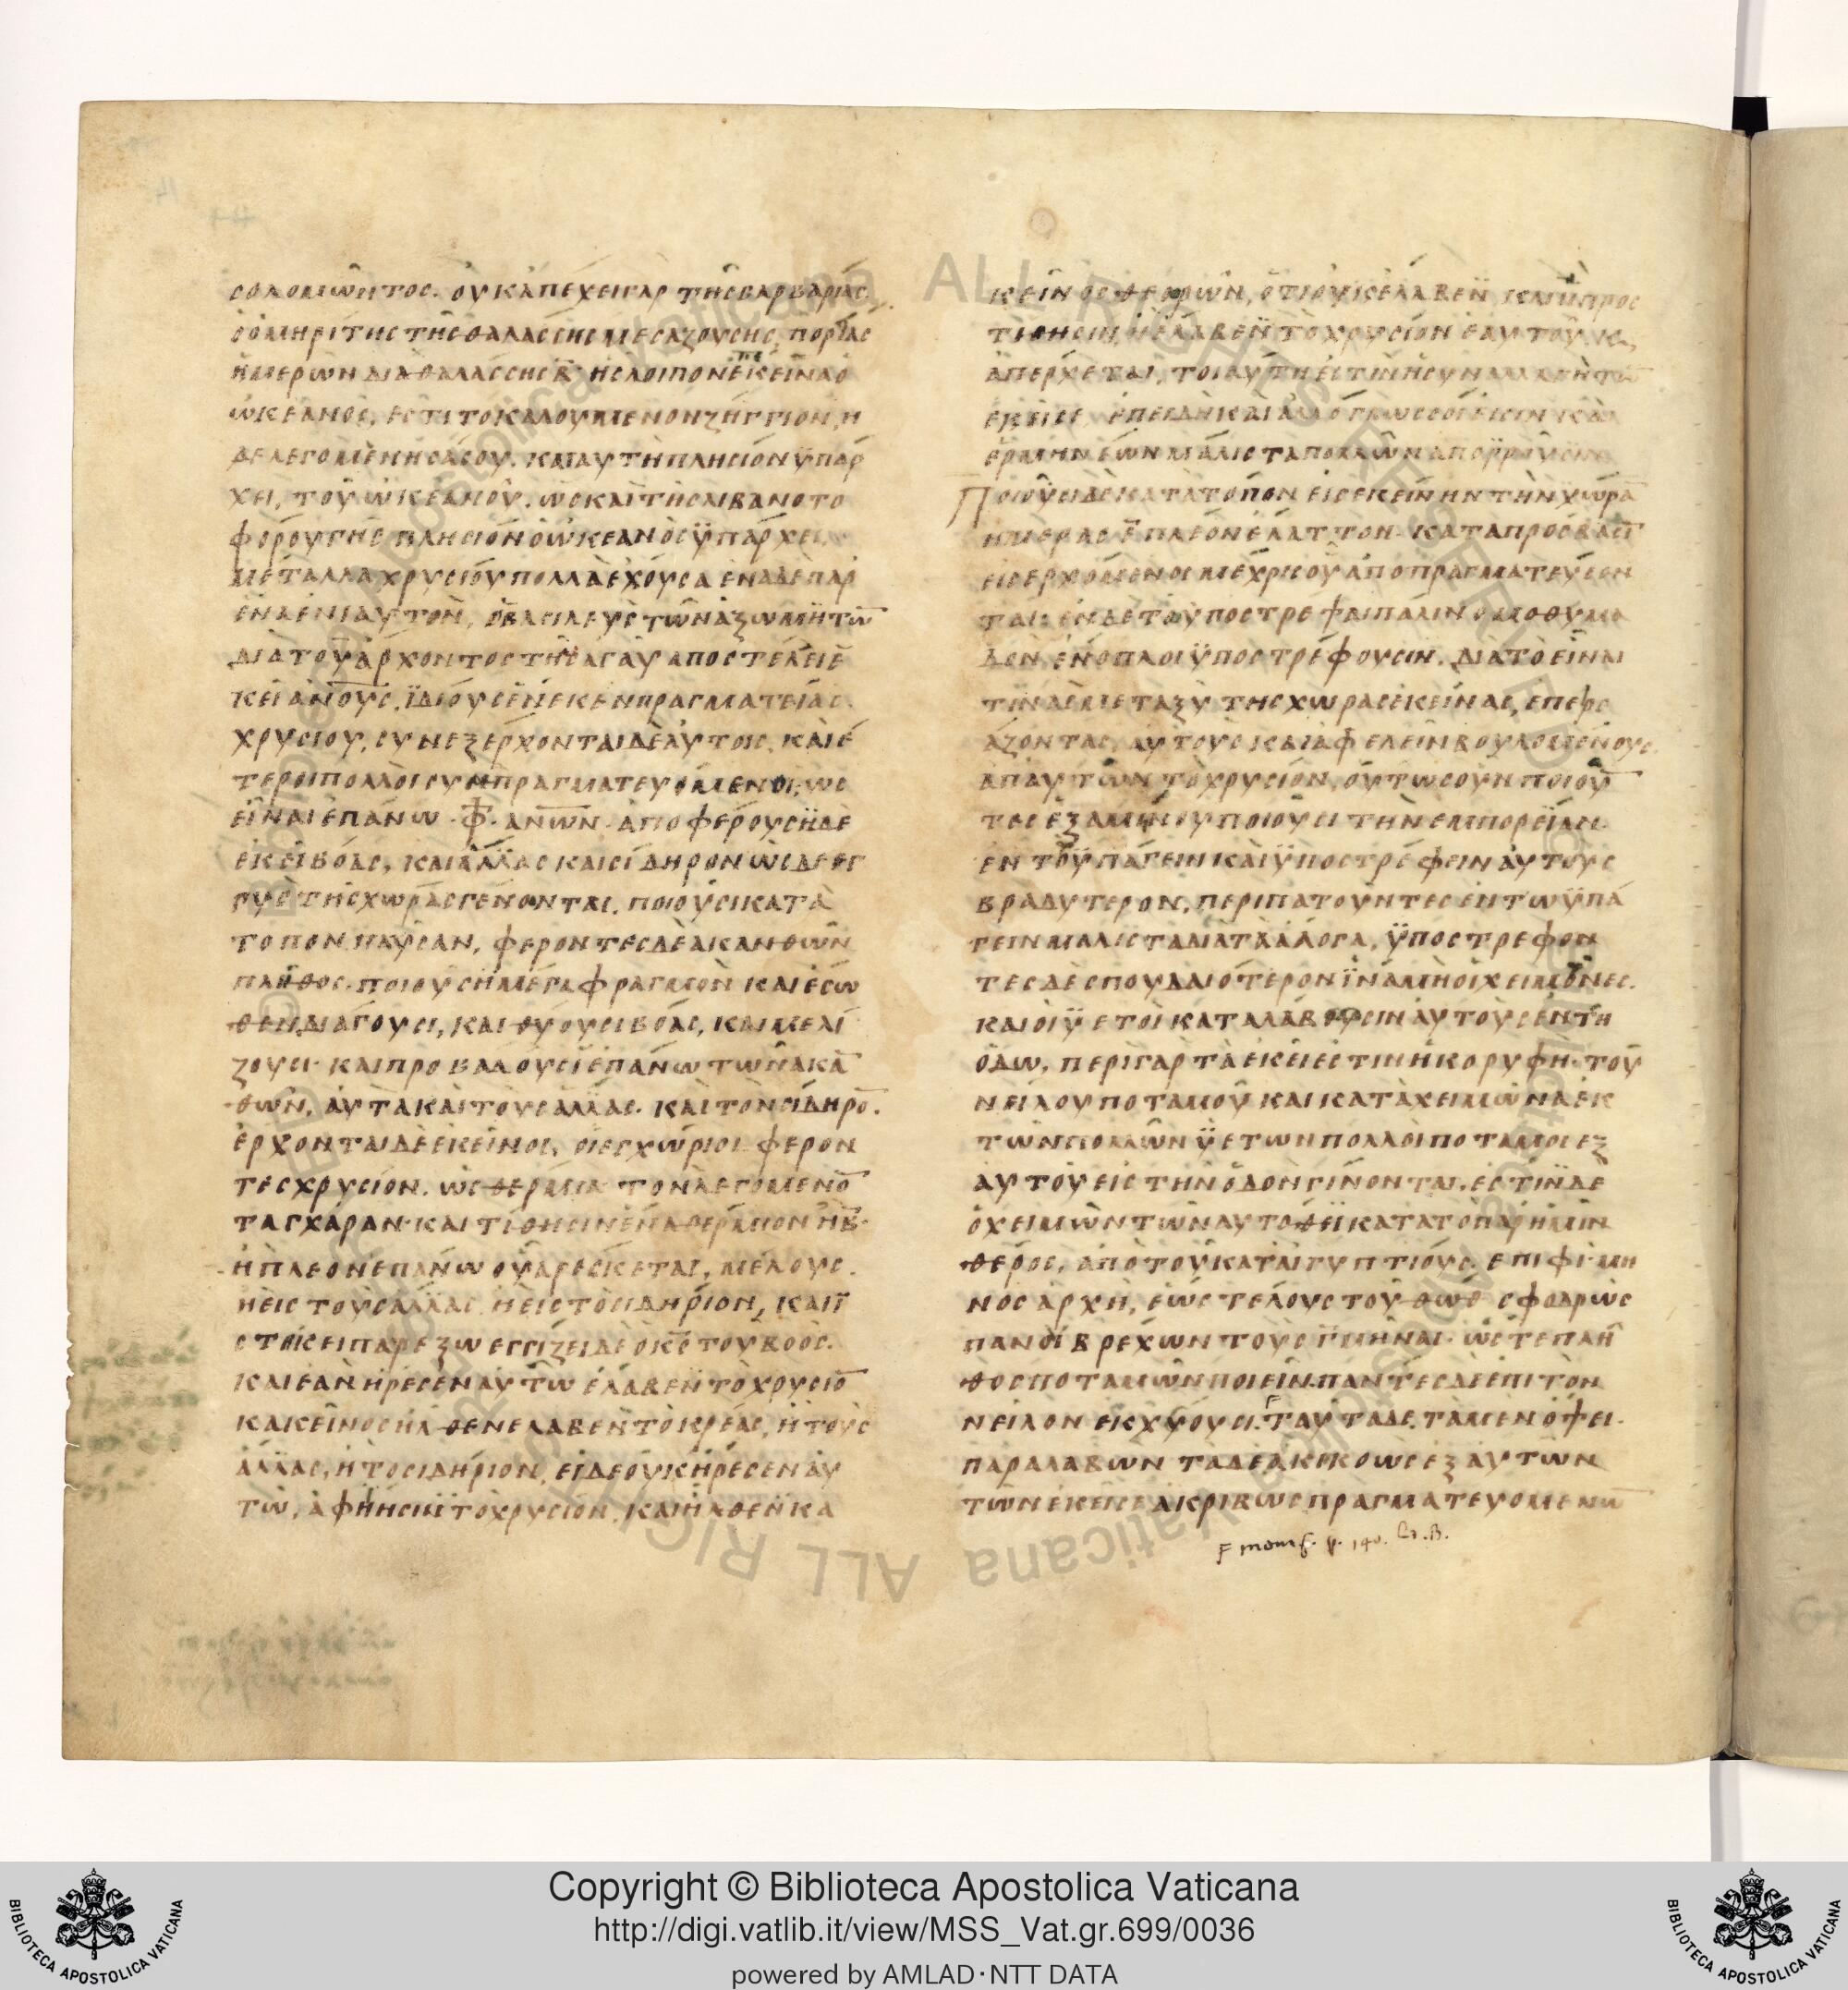 ϲολομῶντοϲ. οὐκ ἀπέχει γὰρ τῆϲ βαρβαρίαϲ
ὁ ὁμηρίτηϲ τῆϲ θαλάϲϲηϲ μεϲαζούϲηϲ, πορείαϲ
ἡμερῶν διὰ θαλάϲϲηϲ β̄.
ὠκεανόϲ, ἐϲτὶ τὸ καλούμενον ζήγγιον, ἡ
δε λεγομένη ϲάϲου. καὶ αὐτὴ πληϲίον ϋπάρ
χει, τοῦ ὠκεανοῦ. ὡϲ καὶ τῆϲ λιβανοτο
φόρου γῆϲ πληϲίον ὁ ὠκεανὸϲ ϋπάρχει
μέταλλα χρυϲίου πολλὰ ἔχουϲα ἕνα δὲ παρ
ἕνα ἐνιαυτὸν, ὁ βαϲιλεὺϲ τῶν ἀξωμητῶ̄
διὰ τοῦ ἄρχοντοϲ τῆϲ ἀγαῦ ἀποϲτέλλει ἐ
κεῖ ἀν̄ουϲ, ϊδίουϲ ἕνεκεν πραγματείαϲ
χρυϲίου, ϲυνεξέρχονται δὲ αὐτοῖϲ, καὶ ἕ
τεροι πολλοὶ ϲυμπραγματευόμενοι, ὡϲ
εἶναι ἐπάνω · φ̄ · ἀν̄ων. ἀποφέρουϲιν δὲ
ἐκεῖ βόαϲ, καὶ ἅλλαϲ καὶ ϲίδηρον ὡϲ δὲ ἐγ
γὺϲ τῆϲ χώραϲ γένονται. ποιοῦϲι κατὰ
τόπον, ἡκυϲιαν, φέροντεϲ δὲ ἀκανθῶν
πλῆθοϲ. ποιοῦϲιν μέγα φραγμὸν καὶ ἔϲω
θεν, διάγουϲι, καὶ θύουϲι βόαϲ, καὶ μελί
ζουϲι. καὶ προβάλουϲιν ἐπάνω τῶν ἀκᾱ
θῶν, αὐτὰ καὶ τοὺϲ ἅλλαϲ. καὶ τὸν ϲίδηρο̄.
ἔρχονται δὲ ἐκεῖνοι, οἱ ἐγχώριοι φέρον
τεϲ χρυϲίον. ὡϲ θέρμια τὸν λεγόμενο̄
ταγχάραν. καὶ τίθηϲιν ἕνα θέρμιον ἢ β̄.
ἢ πλέον ἐπάνω οὗ ἀρέϲκεται, μέλουϲ.
ἢ εἰϲ τοὺϲ ἅλλαϲ ἢ εἰϲ τὸ ϲιδήριον, καὶ ϊ
ϲτήκει παρέξω ἐγγίζει δὲ ὁ κ̄ϲ τοῦ βοόϲ.
καὶ ἐὰν ἤρεϲεν αὐτῶ ἔλαβεν τὸ χρυϲίο̄
κἀκεῖνοϲ ἦλθεν ἔλαβεν τὸ κρέαϲ, ἢ τοὺϲ
ἅλλαϲ, ἢ τὸ ϲιδήριον, εἰ δὲ οὐκ ἤρεϲεν αὐ
τῶ, ἀφίηϲιν τὸ χρυϲίον, καὶ ἦλθεν κἀ
κεῖνοϲ θεωρῶν, ὅτι οὐκ ἔλαβεν, καὶ ἢ προϲ
τίθηϲιν, ἢ ἔλαβεν τὸ χρυϲίον ἑαυτοῦ, κ,
ἀπέρχεται, τοιαύτη ἐϲτιν ἡ ϲυναλλαγὴ τῶ̄
ἐκεῖϲε ἐπειδὴ καὶ ἀλλόγλωϲϲοί εἰϲιν καὶ
ἑρμηνέων μάλιϲτα πολλῶν ἀποροῦϲιν.
Ποιοῦϲι δὲ κατὰ τόπον εἰϲ ἐκείνην τὴν χώρᾱ
ἡμέραϲ ε̄ πλέον ἔλαττον. καταπρόϲβαϲι
εἰϲερχόμενοι μέχριϲ οὗ ἀποπραγματεύϲων
ται. ἐν δὲ τῶ ϋποϲτρέφαι πάλιν ὁμοθυμα
δὸν ἔνοπλοι ϋποϲτρέφουϲιν. διὰ τὸ εἶναι
τινὰϲ μεταξὺ τῆϲ χώραϲ ἐκείναϲ, ἐπερε
άζονταϲ, αὐτοὺϲ καὶ ἀφελεῖν βουλομένουϲ
ἀπ' αὐτῶν τὸ χρυϲίον, οὕτωϲ οὖν ποιοῦ̄
τεϲ ἑξάμηνου ποιοῦϲι τὴν ἐμπορείαν.
ἐν τῶ ϋπάγειν καὶ ϋποϲτρέφειν αὐτοὺϲ
βραδύτερον, περιπατοῦντεϲ ἐν τῶ ϋπά
γειν μάλιϲτα διὰ τὰ ἄλογα, ϋποϲτρέφον
τεϲ δὲ ϲπουδαιότερον ϊνα μὴ οἱ χειμῶνεϲ.
καὶ οἱ ϋετοὶ καταλάβουϲιν αὐτοὺϲ ἐν τῆ
ὁδῶ, περὶ γὰρ τὰ ἐκεῖ ἐϲτιν ἡ κορυφὴ τοῦ
νείλου ποταμοῦ καὶ κατὰ χειμῶνα ἐκ
τῶν πολλῶν ϋετῶν πολλοὶ ποταμοὶ ἐξ
αὐτοῦ εἰϲ τὴν ὁδὸν γίνονται. ἔϲτιν δὲ
ὁ χειμὼν τῶν αὐτόθϊ κατὰ τὸ παρ ἡμῖν
θέροϲ, ἀπὸ τοῦ κατ αἰγυπτίουϲ ἐπιφὶ μη
νὸϲ ἀρχὴ, ἕωϲ τέλουϲ τοῦ θὼθ ϲφοδρῶϲ
πάνοι βρέχων τοὺϲ γ̄ μῆναϲ. ὥϲτε πλῆ
θοϲ ποταμῶν ποιεῖν. πάντεϲ δὲ ἐπὶ τὸν
νεῖλον ἐκχύουϲι. ταῦτα δὲ, τὰ μὲν ὄψει.
παραλαβὼν τὰ δὲ ἀκικοὼϲ ἐξ αὐτῶν
τῶν ἐκεῖϲε ἀκριβῶϲ πραγματευομένω̄
F montf. p. 140. L. B.
Copyright © Biblioteca Apostolica Vaticana
http://digi.vatlib.it/view/MSS_Vat.gr.699/0036
powered by AMLAD·NTT DATA